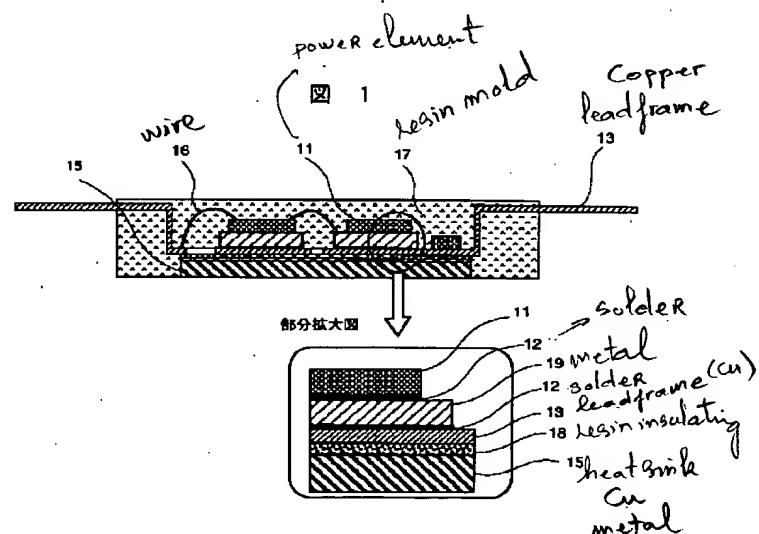 power element
図 1
resin mold
Copper
leadframe
wire
15 16 11 17 13
部分拡大図
11
12 solder
19 metal
12 solder
13 leadframe (Cu)
18 resin insulating
15 heat sink
Cu
metal